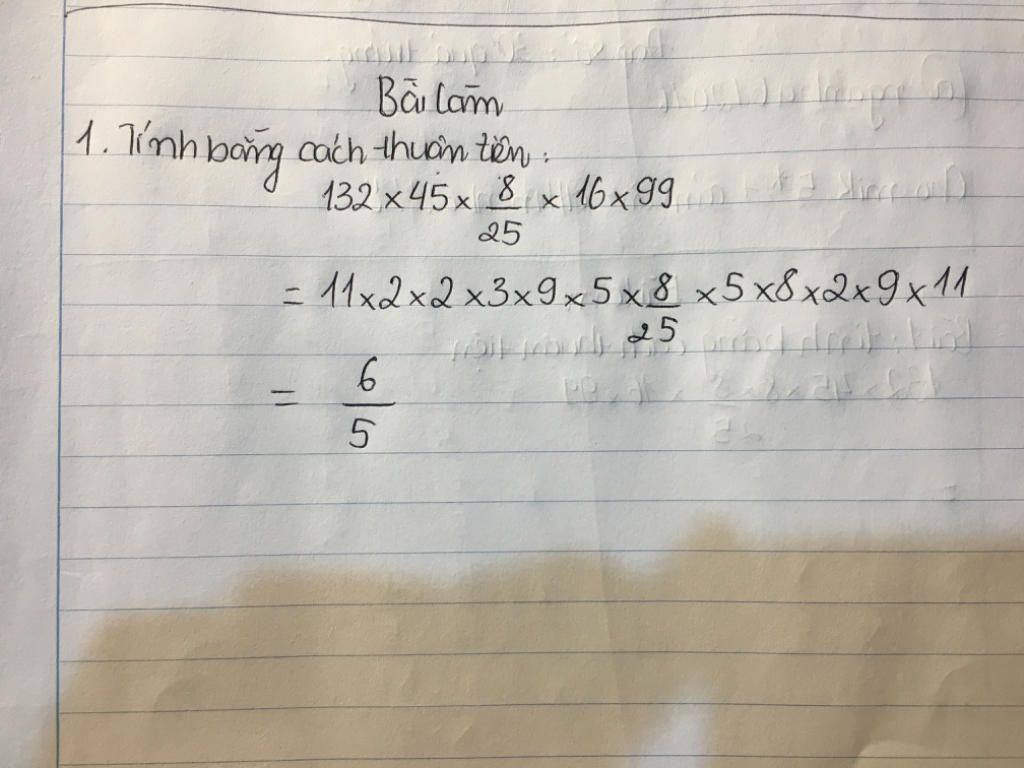 Bài làm
1. Tính bằng cách thuận tiện:
132 × 45 × 8/25 × 16 × 99
= 11 × 2 × 2 × 3 × 9 × 5 × 8/25 × 5 × 8 × 2 × 9 × 11
= 6/5